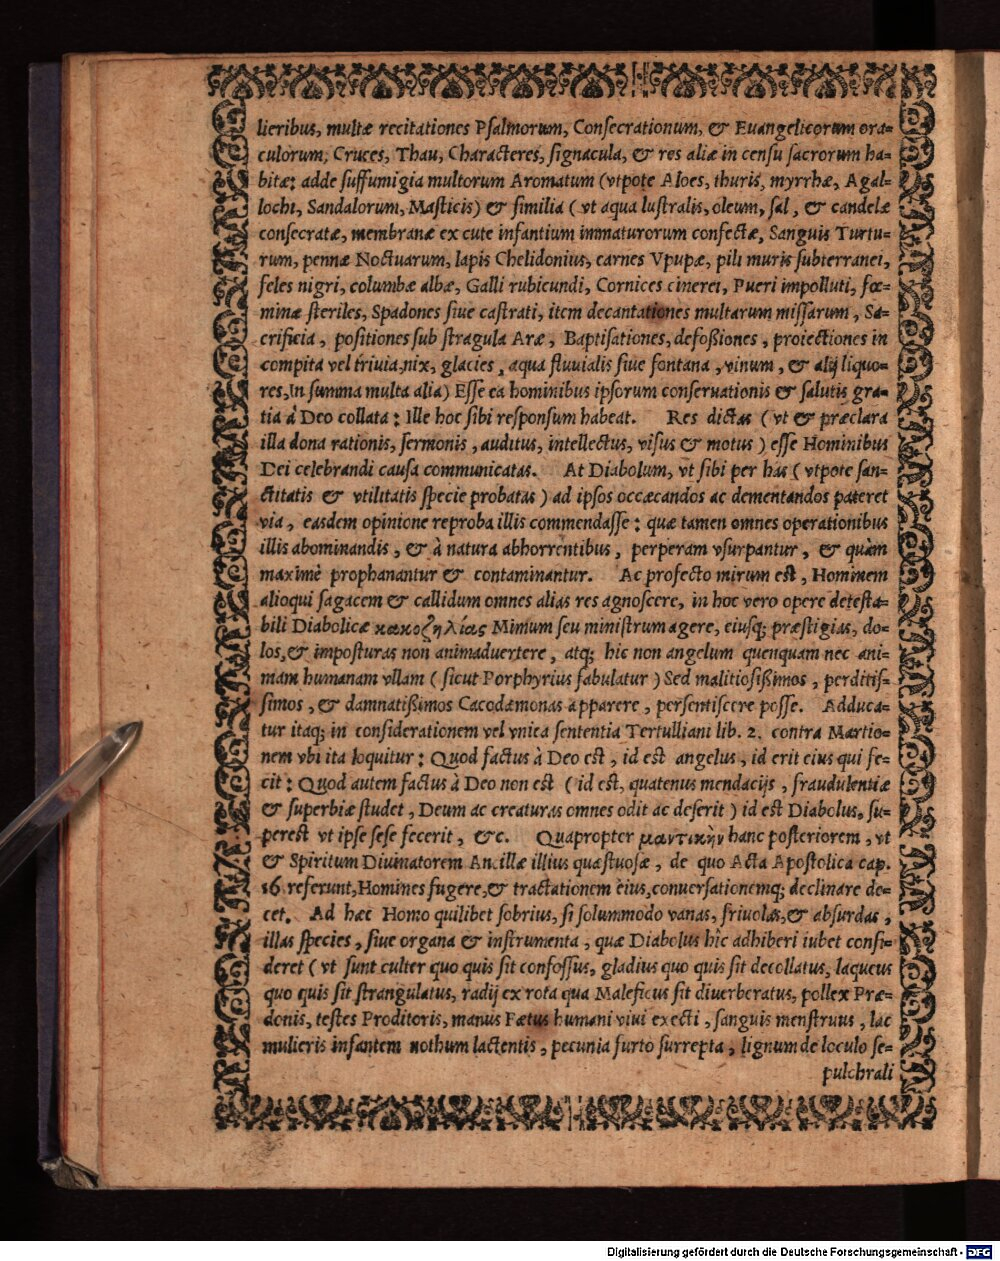 lieribus, multæ recitationes Psalmorum, Consecrationum, & Euangelicorum ora=
culorum, Cruces, Thau, Characteres, signacula, & res aliæ in censu sacrorum ha=
bitæ: adde suffumigia multorum Aromatum (vtpote Aloes, thuris, myrrhæ, Agal=
lochi, Sandalorum, Masticis) & similia (vt aqua lustralis, oleum, sal, & candelæ
consecratæ, membranæ ex cute infantium immaturorum confectæ, Sanguis Turtu=
rum, pennæ Noctuarum, lapis Chelidonius, carnes Vpupæ, pili muris subterranei,
feles nigri, columbæ albæ, Galli rubicundi, Cornices cinerei, Pueri impolluti, fœ=
minæ steriles, Spadones siue castrati, item decantationes multarum missarum, Sa=
crificia, positiones sub stragula Aræ, Baptisationes, defoßiones, proiectiones in
compita vel triuia, nix, glacies, aqua fluuialis siue fontana, vinum, & alij liquo=
res, In summa multa alia) Esse ea hominibus ipsorum conseruationis & salutis gra=
tia à Deo collata: Ille hoc sibi responsum habeat. Res dictas (vt & præclara
illa dona rationis, sermonis, auditus, intellectus, visus & motus) esse Hominibus
Dei celebrandi causa communicatas. At Diabolum, vt sibi per has (vtpote san=
ctitatis & vtilitatis specie probatas) ad ipsos occæcandos ac dementandos pateret
via, easdem opinione reproba illis commendasse: quæ tamen omnes operationibus
illis abominandis, & à natura abhorrentibus, perperam vsurpantur, & quàm
maximè prophanantur & contaminantur. Ac profecto mirum est, Hominem
alioqui sagacem & callidum omnes alias res agnoscere, in hoc vero opere detesta=
bili Diabolicæ κακοζηλίας Mimum seu ministrum agere, eiusq; præstigias, do=
los, & imposturas non animaduertere, atq; hic non angelum quenquam nec ani=
mam humanam vllam (sicut Porphyrius fabulatur) Sed malitiosißimos, perditis=
simos, & damnatißimos Cacodæmonas apparere, persentiscere posse. Adduca=
tur itaq; in considerationem vel vnica sententia Tertulliani lib. 2. contra Martio=
nem vbi ita loquitur: Quod factus à Deo est, id est angelus, id erit eius qui fe=
cit: Quod autem factus à Deo non est (id est, quatenus mendacijs, fraudulentiæ
& superbiæ studet, Deum ac creaturas omnes odit ac deserit) id est Diabolus, su=
perest vt ipse sese fecerit, &c. Quapropter μαντικὴν hanc posteriorem, vt
& Spiritum Diuinatorem Ancillæ illius quæstuosæ, de quo Acta Apostolica cap.
16. referunt, Homines fugere, & tractationem eius, conuersationemq; declinare de=
cet. Ad hæc Homo quilibet sobrius, si solummodo vanas, friuolas, & absurdas,
illas species, siue organa & instrumenta, quæ Diabolus hic adhiberi iubet consi=
deret (vt sunt culter quo quis sit confossus, gladius quo quis sit decollatus, laqueus
quo quis sit strangulatus, radij ex rota qua Maleficus sit diuerberatus, pollex Præ=
donis, testes Proditoris, manus Fætus humani viui execti, sanguis menstruus, lac
mulieris infantem nothum lactentis, pecunia furto surrepta, lignum de loculo se=
pulchrali
Digitalisierung gefördert durch die Deutsche Forschungsgemeinschaft - DFG